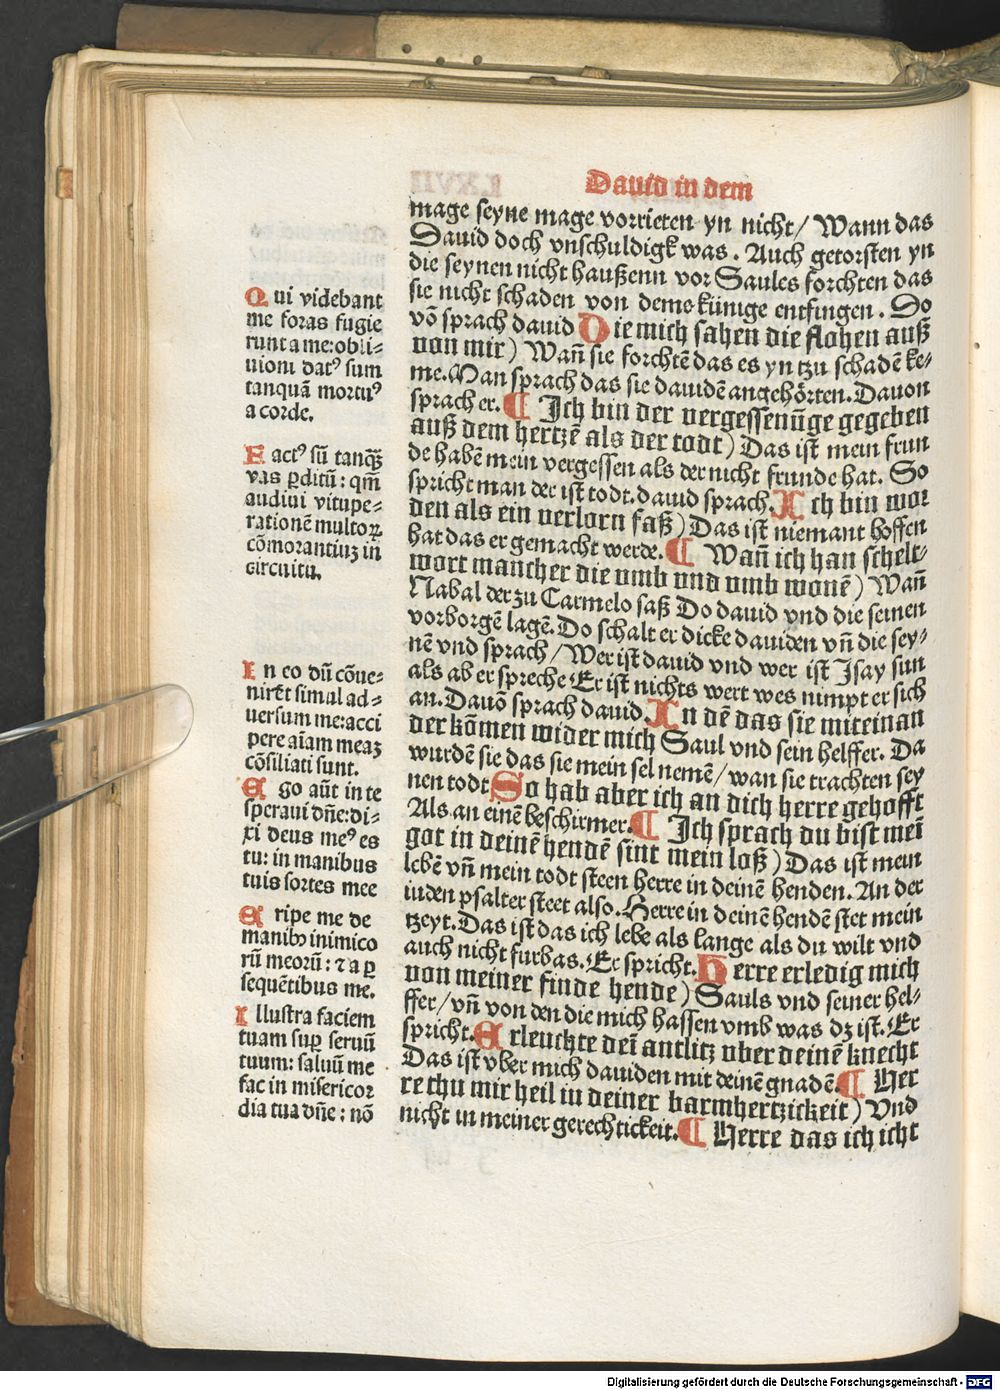 Dauid in dem
mage seyne mage vorrieten yn nicht/ Wann das
Dauid doch vnschuldigk was. Auch getorsten yn
die seynen nicht haußenn vor Saules forchten das
sie nicht schaden von deme künige entfingen. Do
vō sprach dauid Die mich sahen die flohen auß
von mir) Wañ sie forchtē das es yn tzu schadē ke⸗
me. Man sprach das sie dauidē angehörten. Dauon
sprach er. ¶ Ich bin der vergessenūge gegeben
auß dem hertzē als der todt) Das ist mein frun
de habē mein vergessen als der nicht frunde hat. So
spricht man der ist todt. dauid sprach. Ich bin wor
den als ein verlorn faß) Das ist niemant hoffen
hat das er gemacht werde. ¶ Wañ ich han schelt⸗
wort mancher die vmb vnd vmb wonē) Wañ
Nabal der zu Carmelo saß Do dauid vnd die seinen
vorborgē lagē. Do schalt er dicke dauiden vñ die sey⸗
nē vnd sprach/ Wer ist dauid vnd wer ist Isay sun
als ab er spreche Er ist nichts wert wes nimpt er sich
an. Dauō sprach dauid. In dē das sie miteinan
der kōmen wider mich Saul vnd sein helffer. Da
wurdē sie das sie mein sel nemē/ wan sie trachten sey
nen todt So hab aber ich an dich herre gehofft
Als an einē beschirmer. ¶ Ich sprach du bist mei
got in deinē hendē sint mein loß) Das ist mein
lebē vñ mein todt steen herre in deinē henden. An der
iuden psalter steet also. Herre in deinē hendē stet mein
tzeyt. Das ist das ich lebe als lange als du wilt vnd
auch nicht furbas. Er spricht. Herre erledig mich
von meiner finde hende) Sauls vnd seiner hel⸗
ffer/ vñ von den die mich hassen vmb was dz ist. Er
spricht. Erleuchte dei antlitz vber deinē knecht
Das ist vber mich dauiden mit deinē gnadē. ¶ Her
re thu mir heil in deiner barmhertzickeit) Vnd
nicht in meiner gerechtickeit. ¶ Herre das ich icht
Qui videbant
me foras fugie
runt a me: obli⸗
uioni datꝰ sum
tanquā mortuꝰ
a corde.
Factꝰ sū tanqꝫ
vas ꝑditū: qm̄
audiui vitupe⸗
rationē multoꝝ
cōmorantiuꝫ in
circuitu.
In eo dū cōue⸗
nirēt simul ad⸗
uersum me: acci
pere aīam meaꝫ
cōsiliati sunt.
Ego aūt in te
speraui dn̄e: di⸗
xi deus meꝰ es
tu: in manibus
tuis sortes mee
Eripe me de
manibꝰ inimico
rū meorū: ⁊ a ꝑ
sequētibus me.
Illustra faciem
tuam suꝑ seruū
tuum: saluū me
fac in misericor
dia tua dn̄e: nō
Digitalisierung gefördert durch die Deutsche Forschungsgemeinschaft - DFG